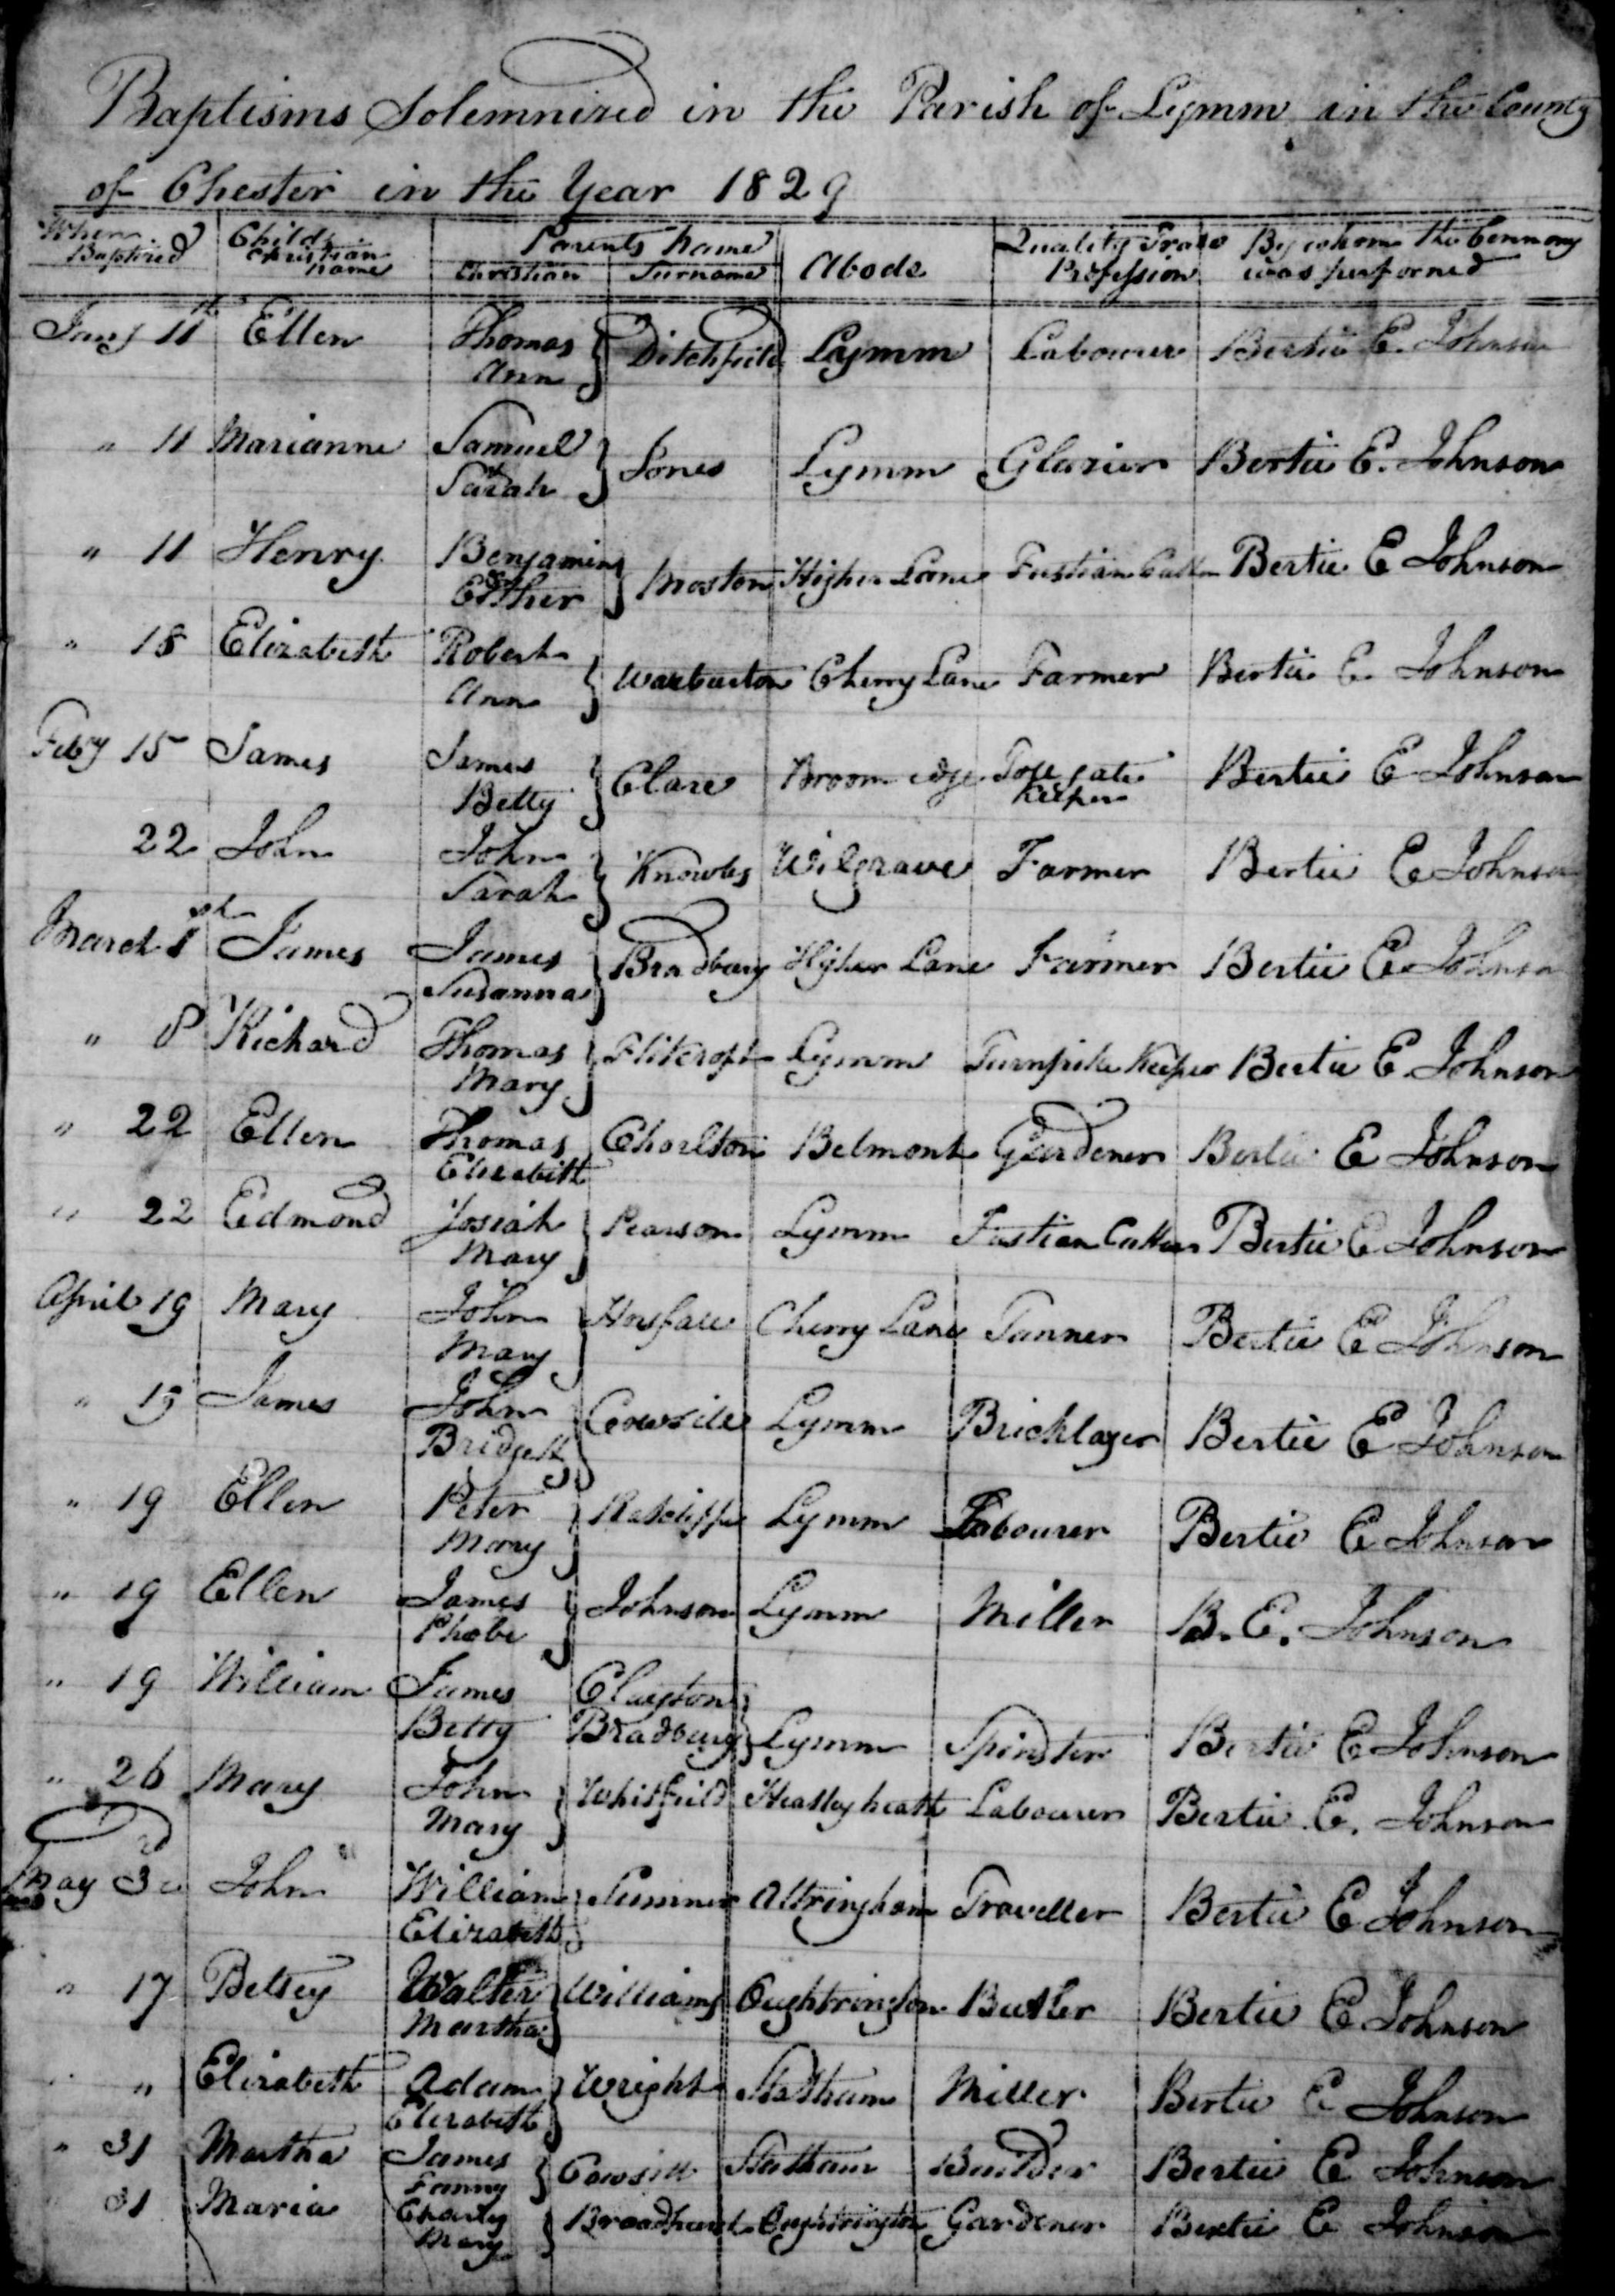 Baptisms Solemnized in the Parish of Lymm in the County
of Chester in the Year 1829
When Baptized Child's Christian name Parents Name Christian Surname Abode Quality Trade Profession By whom the Ceremony was performed
Jany 11th Ellen Thomas Ann Ditchfield Lymm Labourer Bertie E. Johnson
" 11 Marianne Samuel Sarah Jones Lymm Glazier Bertie E. Johnson
" 11 Henry Benjamin Esther Moston Higher Lane Fustian Cutter Bertie E Johnson
" 18 Elizabeth Robert Ann Warburton Cherry Lane Farmer Bertie E. Johnson
Feby 15 James James Betty Clare Broom edge Toll gate Keeper Bertie E Johnson
22 John John Sarah Knowles Wilgrave Farmer Bertie E Johnson
March 1st James James Susanna Bradbury Higher Lane Farmer Bertie E Johnson
" 8 Richard Thomas Mary Flitcroft Lymm Turnpike Keeper Bertie E Johnson
" 22 Ellen Thomas Elizabeth Chorlton Belmont Gardener Bertie E Johnson
" 22 Edmond Josiah Mary Pearson Lymm Fustian Cutter Bertie E Johnson
April 19 Mary John Mary Horsfall Cherry Lane Tanner Bertie E Johnson
" 19 James John Bridgett Cowsill Lymm Bricklayer Bertie E Johnson
" 19 Ellen Peter Mary Ratcliffe Lymm Labourer Bertie E Johnson
" 19 Ellen James Phobe Johnson Lymm Miller B. E. Johnson
" 19 William James Betty Clayton Bradbury Lymm Spinster Bertie E Johnson
" 26 Mary John Mary Whitfield Heatley heath Labourer Bertie E. Johnson
May 3d John William Elizabeth Sumner Altringham Traveller Bertie E Johnson
" 17 Betsey Walter Martha Williams Oughtrington Butler Bertie E Johnson
" Elizabeth Adam Elizabeth Wright Statham Miller Bertie E Johnson
" 31 Martha James Fanny Cowsill Statham Builder Bertie E Johnson
" 31 Maria Charles Mary Broadhurst Oughtrington Gardener Bertie E Johnson